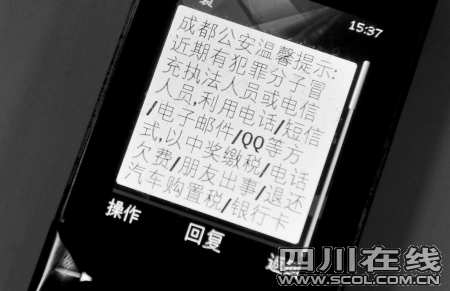 15:37
成都公安温馨提示:
近期有犯罪分子冒
充执法人员或电信
人员,利用电话/短信
/电子邮件/QQ等方
式,以中奖缴税/电话
欠费/朋友出事/退还
汽车购置税/银行卡
操作
回复
四川在线
WWW.SCOL.COM.CN